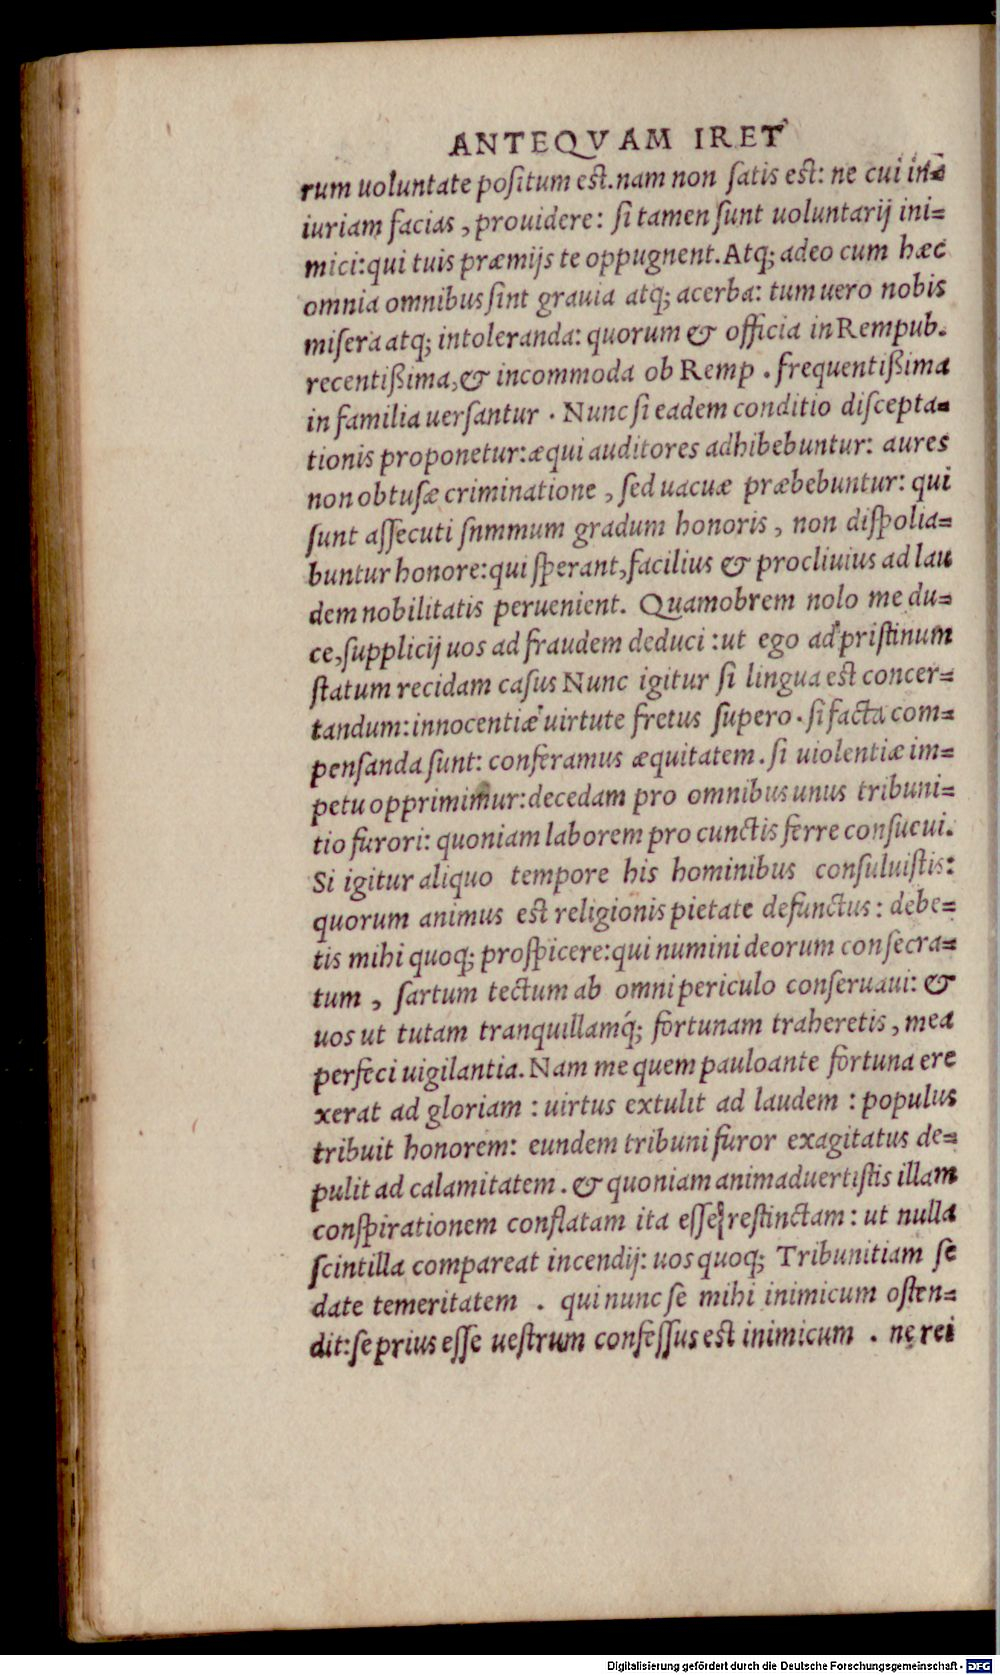 ANTEQVAM IRET
rum uoluntate positum est. nam non satis est: ne cui in=
iuriam facias, prouidere: si tamen sunt uoluntarij ini=
mici: qui tuis præmijs te oppugnent. Atq; adeo cum hæc
omnia omnibus sint grauia atq; acerba: tum uero nobis
misera atq; intoleranda: quorum & officia in Rempub.
recentißima, & incommoda ob Remp. frequentißima
in familia uersantur. Nunc si eadem conditio discepta=
tionis proponetur: æqui auditores adhibebuntur: aures
non obtusæ criminatione, sed uacuæ præbebuntur: qui
sunt assecuti snmmum gradum honoris, non dispolia=
buntur honore: qui sperant, facilius & procliuius ad lau
dem nobilitatis peruenient. Quamobrem nolo me du=
ce, supplicij uos ad fraudem deduci: ut ego ad pristinum
statum recidam casus Nunc igitur si lingua est concer=
tandum: innocentiæ uirtute fretus supero. si facta com=
pensanda sunt: conferamus æquitatem. si uiolentiæ im=
petu opprimimur: decedam pro omnibus unus tribuni=
tio furori: quoniam laborem pro cunctis ferre consueui.
Si igitur aliquo tempore his hominibus consuluistis:
quorum animus est religionis pietate defunctus: debe=
tis mihi quoq; prospicere: qui numini deorum consecra=
tum, sartum tectum ab omni periculo conseruaui: &
uos ut tutam tranquillamq́; fortunam traheretis, mea
perfeci uigilantia. Nam me quem pauloante fortuna ere
xerat ad gloriam: uirtus extulit ad laudem: populus
tribuit honorem: eundem tribuni furor exagitatus de=
pulit ad calamitatem. & quoniam animaduertistis illam
conspirationem conflatam ita esse restinctam: ut nulla
scintilla compareat incendij: uos quoq; Tribunitiam se
date temeritatem. qui nunc se mihi inimicum osten=
dit: se prius esse uestrum confessus est inimicum. ne rei
Digitalisierung gefördert durch die Deutsche Forschungsgemeinschaft - DFG